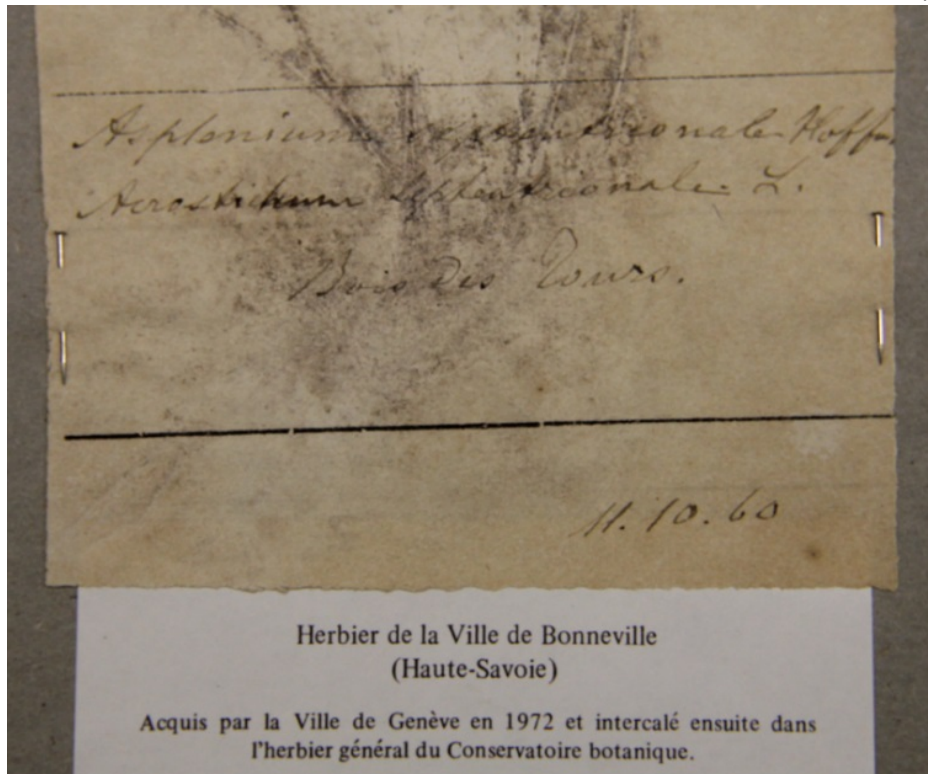 Asplenium septentrionale Hoffm.
Acrostichum septentrionale L.
Bois des Tours.
11.10.60
Herbier de la Ville de Bonneville
(Haute-Savoie)
Acquis par la Ville de Genève en 1972 et intercalé ensuite dans
l'herbier général du Conservatoire botanique.